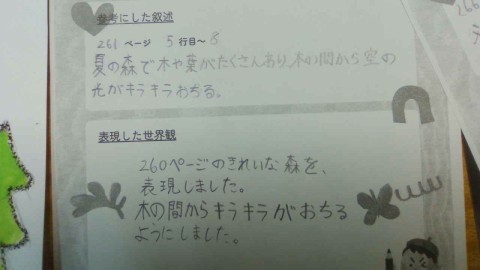 参考にした叙述
261ページ 5行目～8
夏の森で木や葉がたくさんあり、木の間から空の
光がキラキラおちる。
表現した世界観
260ページのきれいな森を、
表現しました。
木の間からキラキラがおちる
ようにしました。